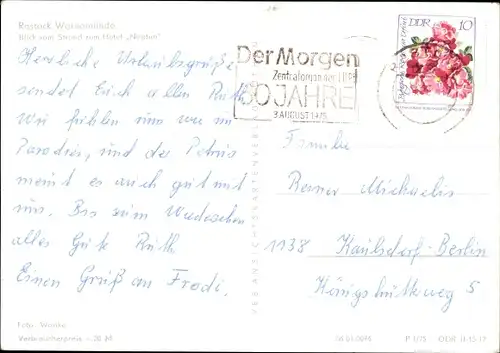 Rostock Warnemünde
Blick vom Strand zum Hotel „Neptun“
Herzliche Urlaubsgrüße
sendet Euch allen Ruth.
Wir fühlen uns wie im
Paradies, und der Petrus
meint es auch gut mit
uns. Bis zum Wiedersehen
alles Gute Ruth
Einen Gruß an Frodi.
Foto: Wenke
Verbraucherpreis
Der Morgen
Zentralorgan der LDPD
30 JAHRE
3. AUGUST 1975
DDR 10
Familie
Berner Michaelis
1138 Kaulsdorf-Berlin
Königshütteweg 5
P 1/75